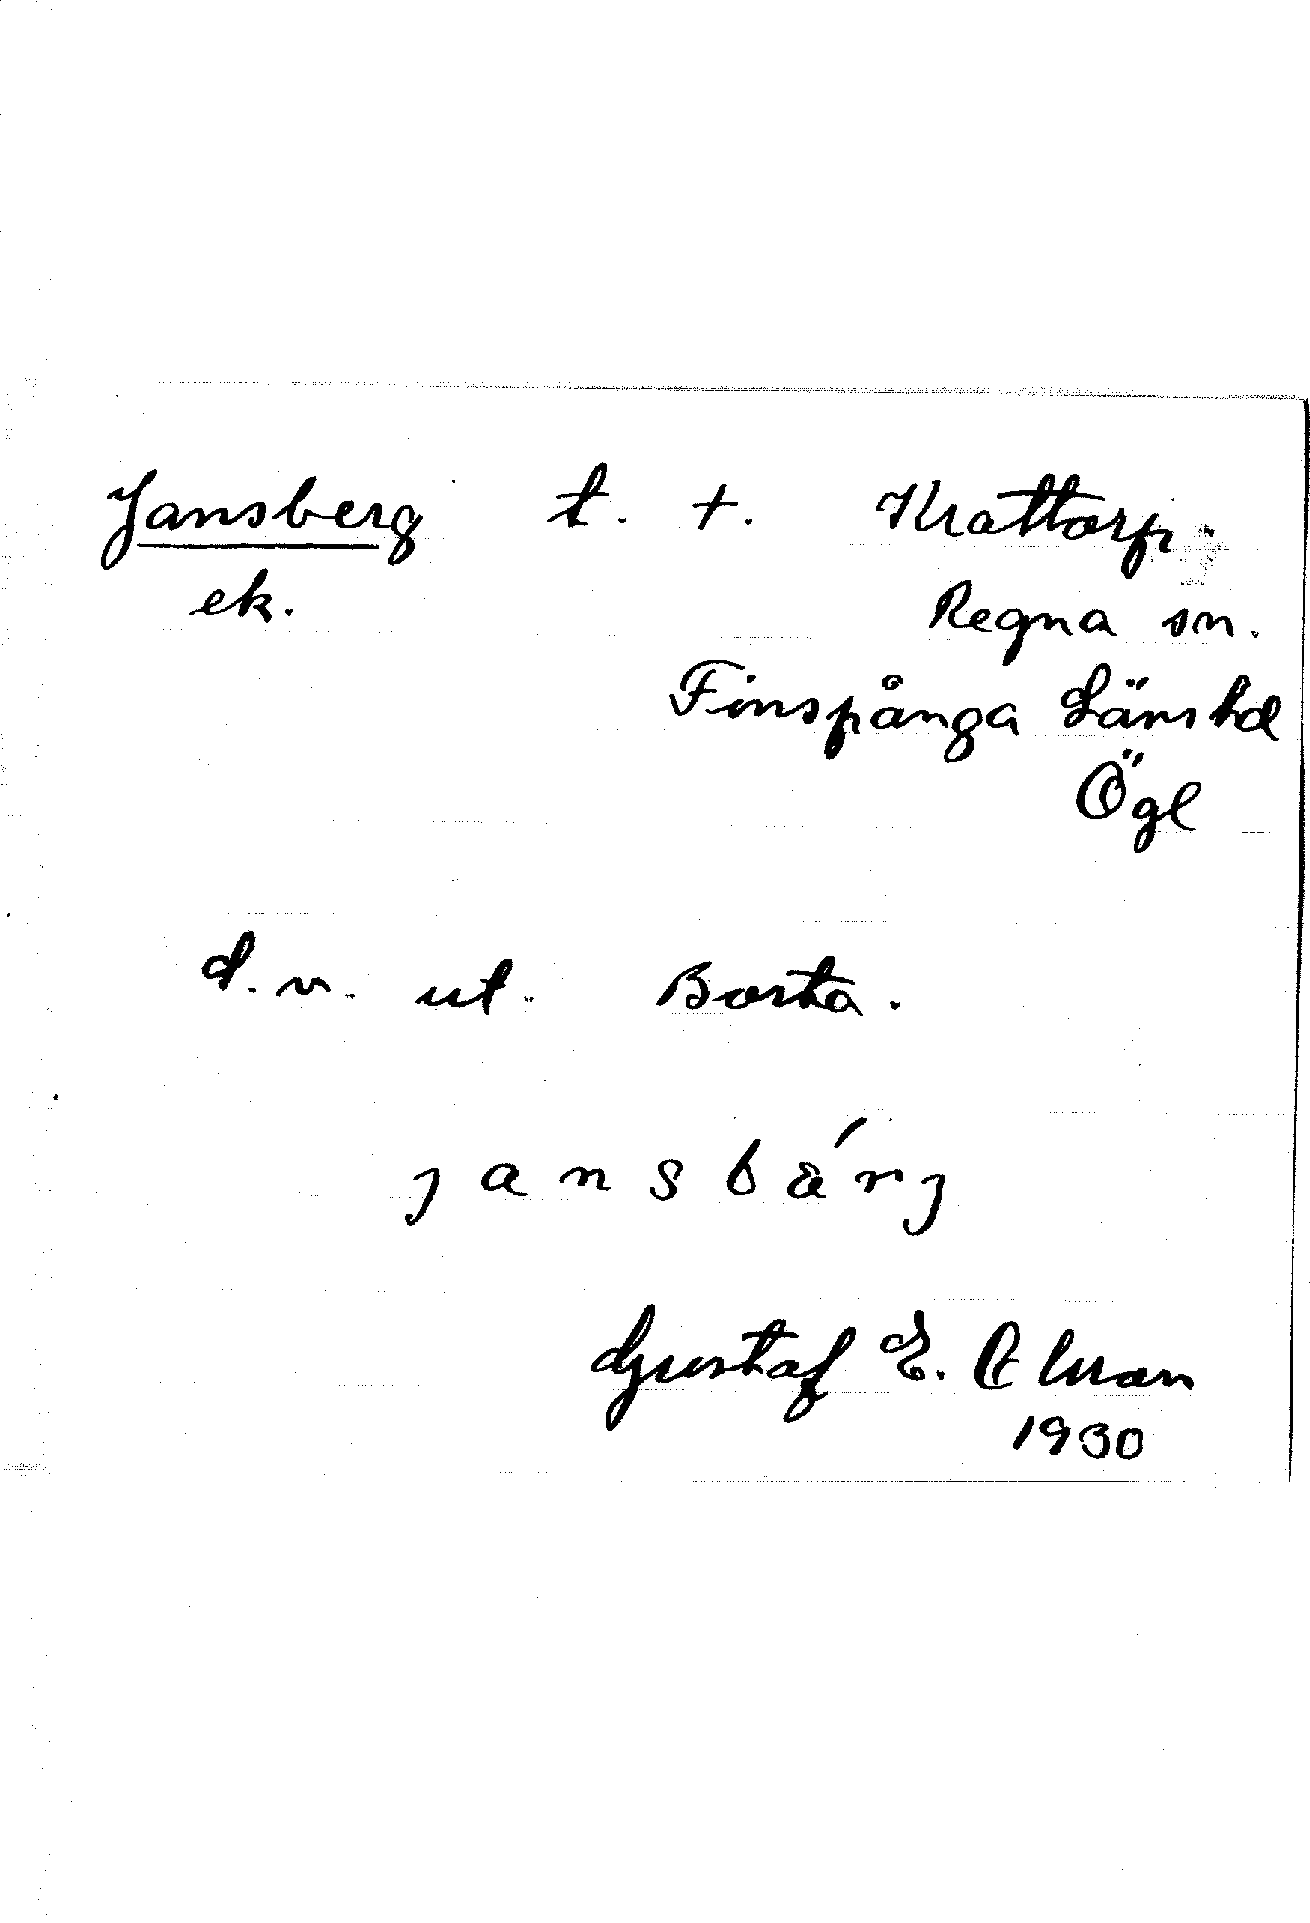 Jansberg t. t. Krattorp.
ek.
Regna sn.
Finspånga Läns hd
Ögl
d.v. ut. Borta.
jansbärj
Gustaf E. Alman
1930